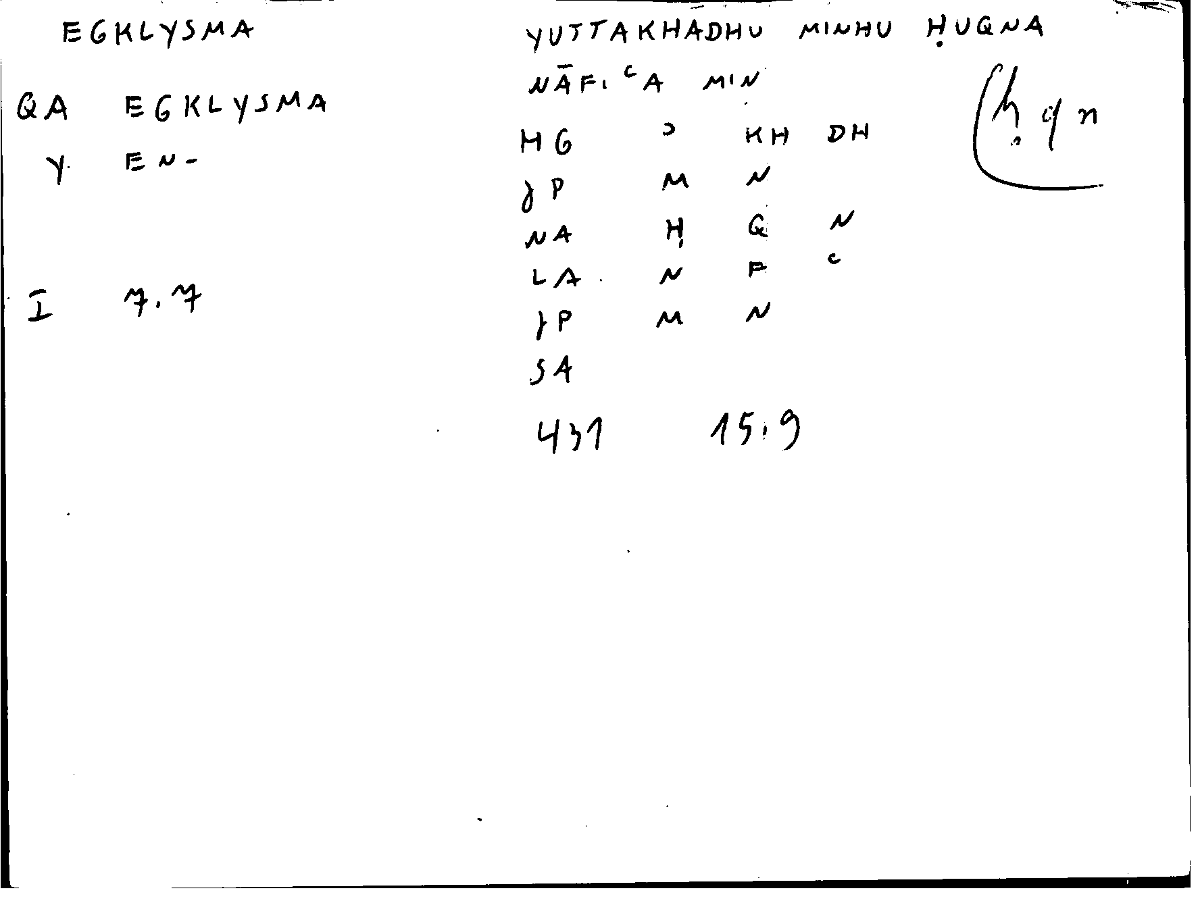 EGKLYSMA
QA EGKLYSMA
Y EN-
I 7.7
YUTTAKHADHU MINHU ḤUQNA
NĀFIʿA MIN
HG ʾ KH DH
JP M N
NA Ḥ Q N
LA N F ʿ
JP M N
SA
431 15,9
ḥqn